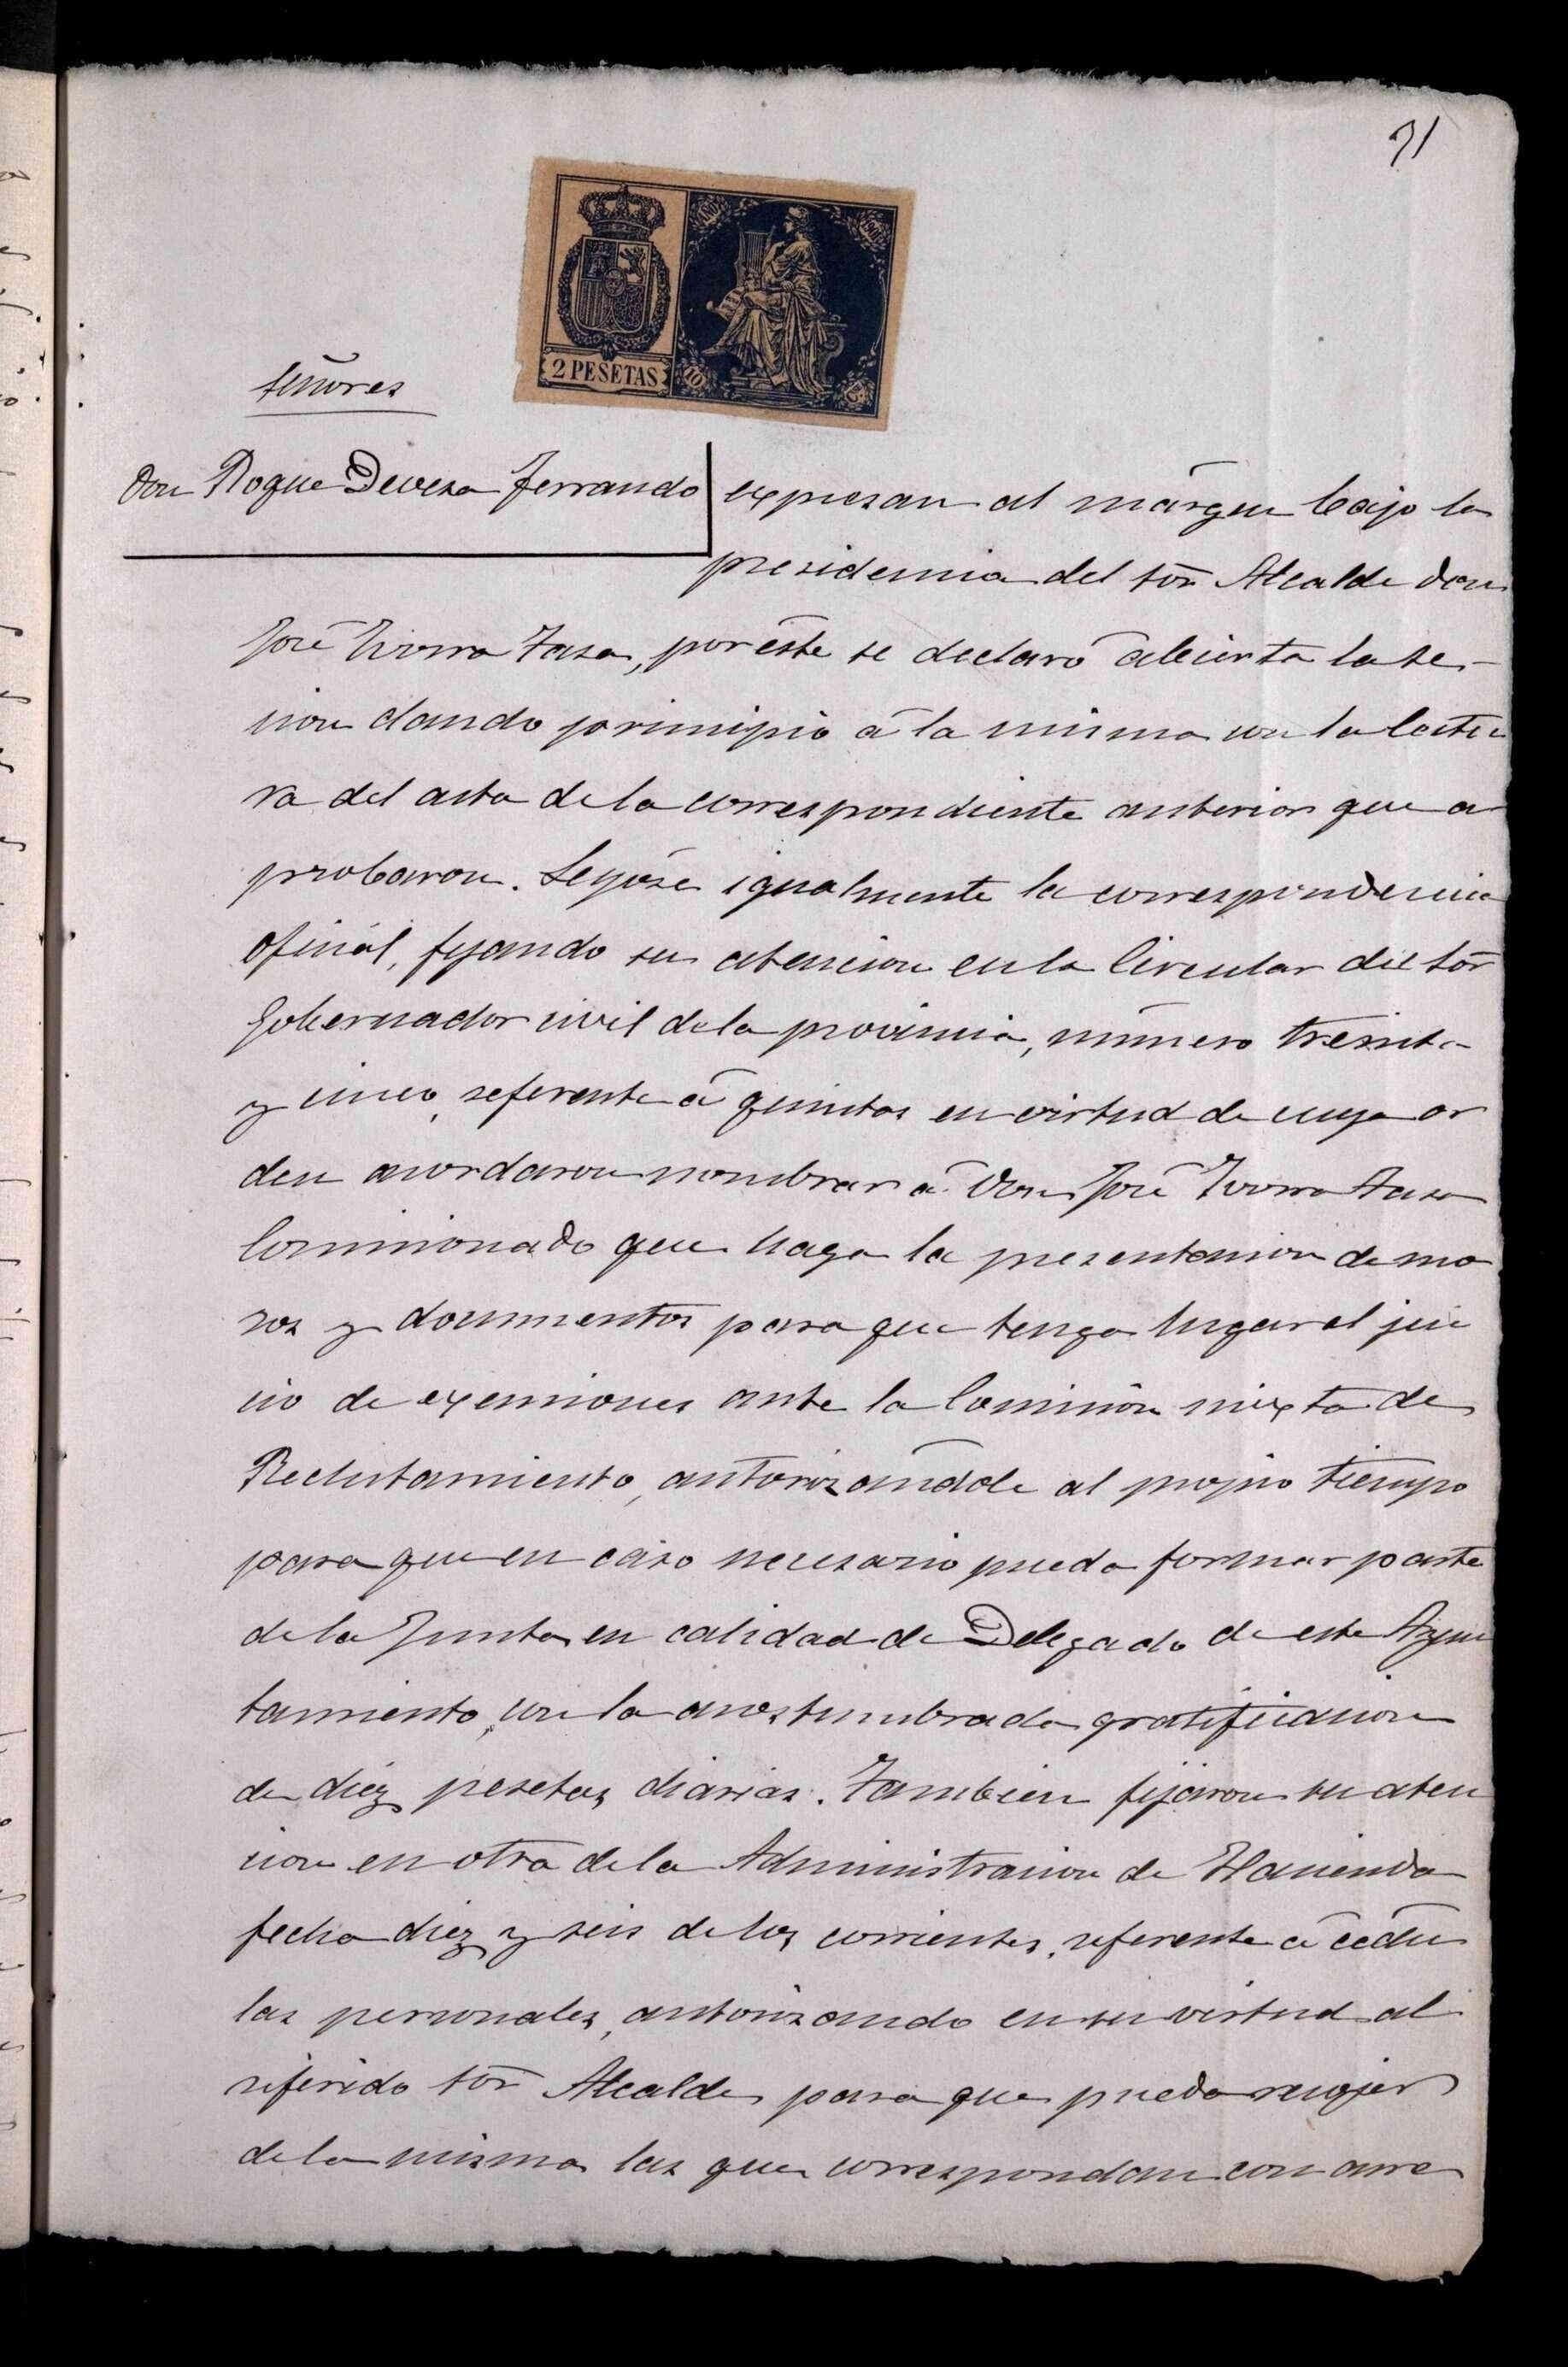 71
1901
1901
2 PESETAS
10
Señores
Don Roque Devesa Ferrando
expresan al márgen bajo la
presidencia del Sor Alcalde don
José Ivorra Tasa, por éste se declaró abierta la se-
sion dando principio á la misma con la lectu
ra del acta de la correspondiente anterior que a
probaron. Leyóse igualmente la correspondencia
oficial, fijando su atencion en la Circular del Sor
Gobernador civil de la provincia, número treinta
y cinco, referente á quintas en virtud de cuya or
den acordaron nombrar á Don José Ivorra Tasa
Comisionado que haga la presentacion de mo
zos y documentos para que tenga lugar el jui
cio de exenciones ante la Comisión mixta de
Reclutamiento, autorizándole al propio tiempo
para que en caso necesario pueda formar parte
de la Junta en calidad de Delegado de este Ayun
tamiento, con la acostumbrada gratificacion
de diez pesetas diarias. Tambien fijaron su aten
cion en otra de la Administracion de Hacienda
fecha diez y seis de los corrientes, referente á cédu
las personales, autorizando en su virtud al
referido Sor Alcalde para que pueda recojer
de la misma las que correspondan con arre